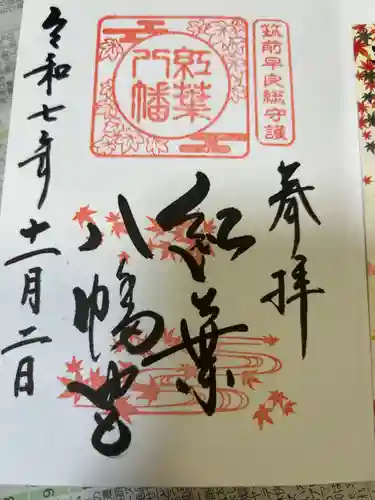 筑前早良総守護
奉拝
紅葉八幡
紅葉
八幡宮
令和七年十一月二日